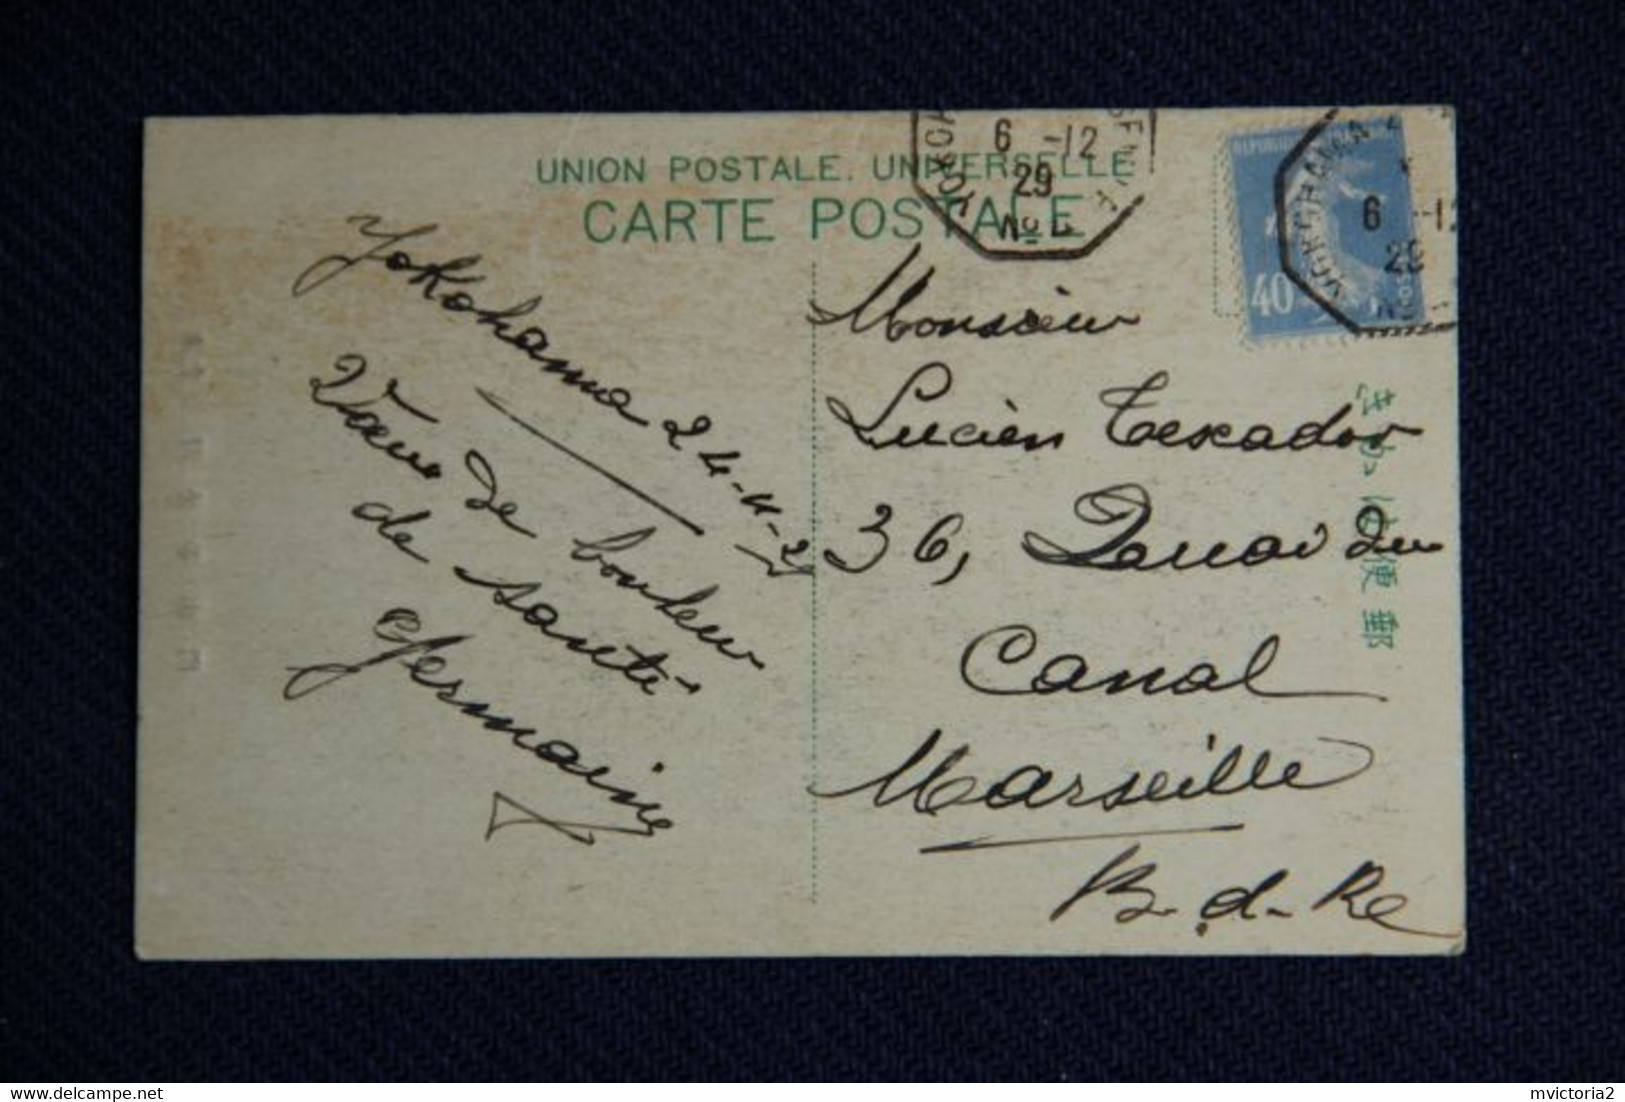 UNION POSTALE. UNIVERSELLE
CARTE POSTALE
6 -12
29
No
REPUBLIQUE
40
YOKOHAMA
6 -12
29
No
Yokohama 24-11-29
Vœux de bonheur
de santé
Germaine
Monsieur
Lucien Tescador
36, Quai du
Canal
Marseille
B-d-Re
きかは便郵
mvictoria2